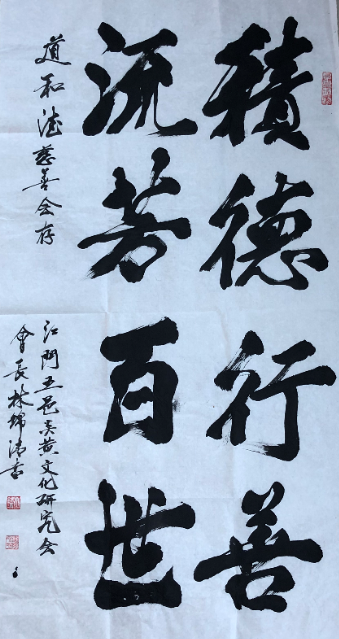 積德行善
流芳百世
道和德慈善会存
江門五邑炎黄文化研究会
會長林錦清書